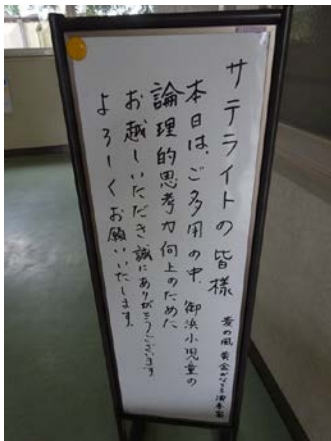 サテライトの皆様
本日は、ご多用の中、御浜小児童の
論理的思考力向上のために
お越しいただき誠にありがとうございます。
よろしくお願いいたします。
麦の風 黄金が